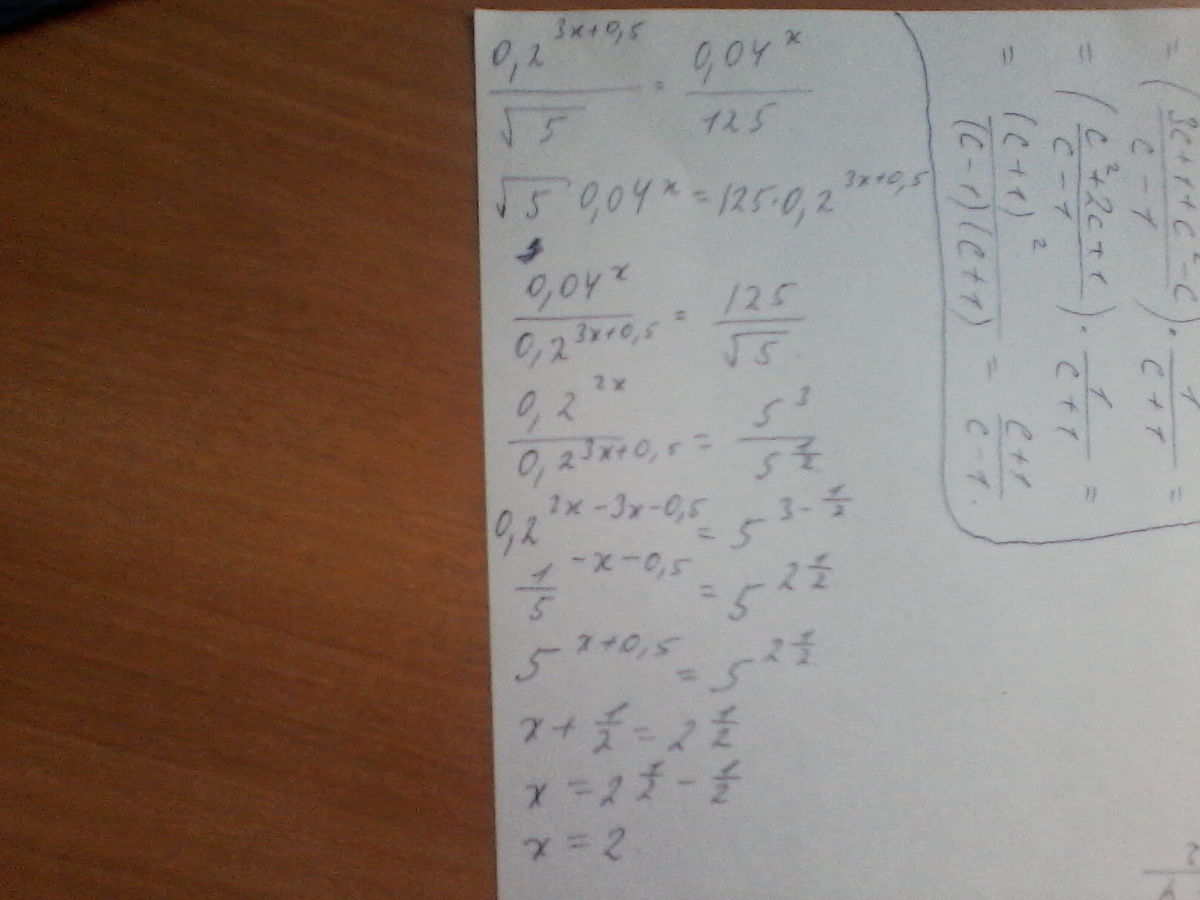 0,2^(3x+0,5) / √5 = 0,04^x / 125
√5 0,04^x = 125·0,2^(3x+0,5)
0,04^x / 0,2^(3x+0,5) = 125 / √5
0,2^(2x) / 0,2^(3x+0,5) = 5^3 / 5^(1/2)
0,2^(2x-3x-0,5) = 5^(3-1/2)
1/5^(-x-0,5) = 5^(2 1/2)
5^(x+0,5) = 5^(2 1/2)
x + 1/2 = 2 1/2
x = 2 1/2 - 1/2
x = 2
= (3c+1+c^2-c / c-1) · 1 / c+1 =
= (c^2+2c+1 / c-1) · 1 / c+1 =
= (c+1)^2 / (c-1)(c+1) = c+1 / c-1.